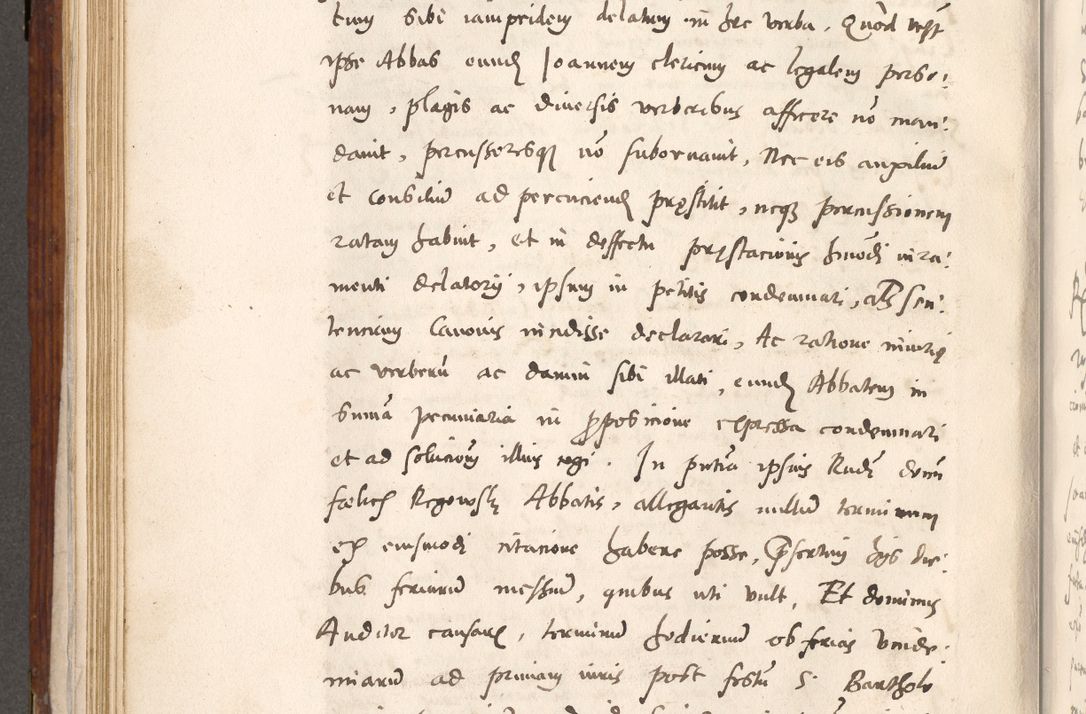 tum sibi iampridem delatum in hec verba. Quod vest
ipse Abbas eund Joannem clericum ac legalem perso:
nam, plagis ac diversis verberibus afficere no man:
davit, percussoresq no subornavit, Nec eis auxiliu
et consiliu ad percuciend prestitit, neq percussionem
ratam habuit, et in deffectu prestacionis hmodi iura:
menti delatorii, ipsum in petitis condemnari, als sen:
tenciam Canonis incidisse declarari, Ac ratione iniurie
ac verberu ac damni sibi illati, eund Abbatem in
suma pecuniaria in proposicione expressa condemnari
et ad solucionem illius cogi. In pntia ipsius Rndi domi
foelicis Regowski Abbatis, allegantis nullum terminum
ex eiusmodi citacione habere posse, presertim his die:
bus feriaru messium, quibus uti vult, Et dominus
Auditor causaru, terminu hodiernu ob ferias vinde:
miaru ad primam iuris post festu S. Bartholo